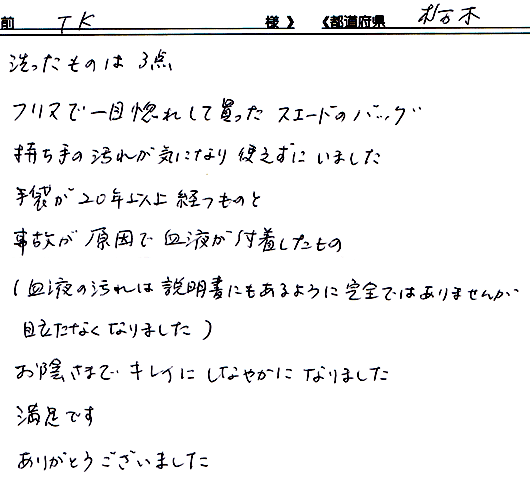 前 TK 様》 《都道府県 栃木
洗ったものは 3点
フリマで一目惚れして買った スエードのバッグ
持ち手の汚れが気になり 使えずにいました
手袋が20年以上経つものと
事故が 原因で 血液が付着したもの
(血液の汚れは 説明書にもあるように完全ではありませんが
目立たなくなりました)
お陰さまで キレイに しなやかに なりました
満足です
ありがとうございました